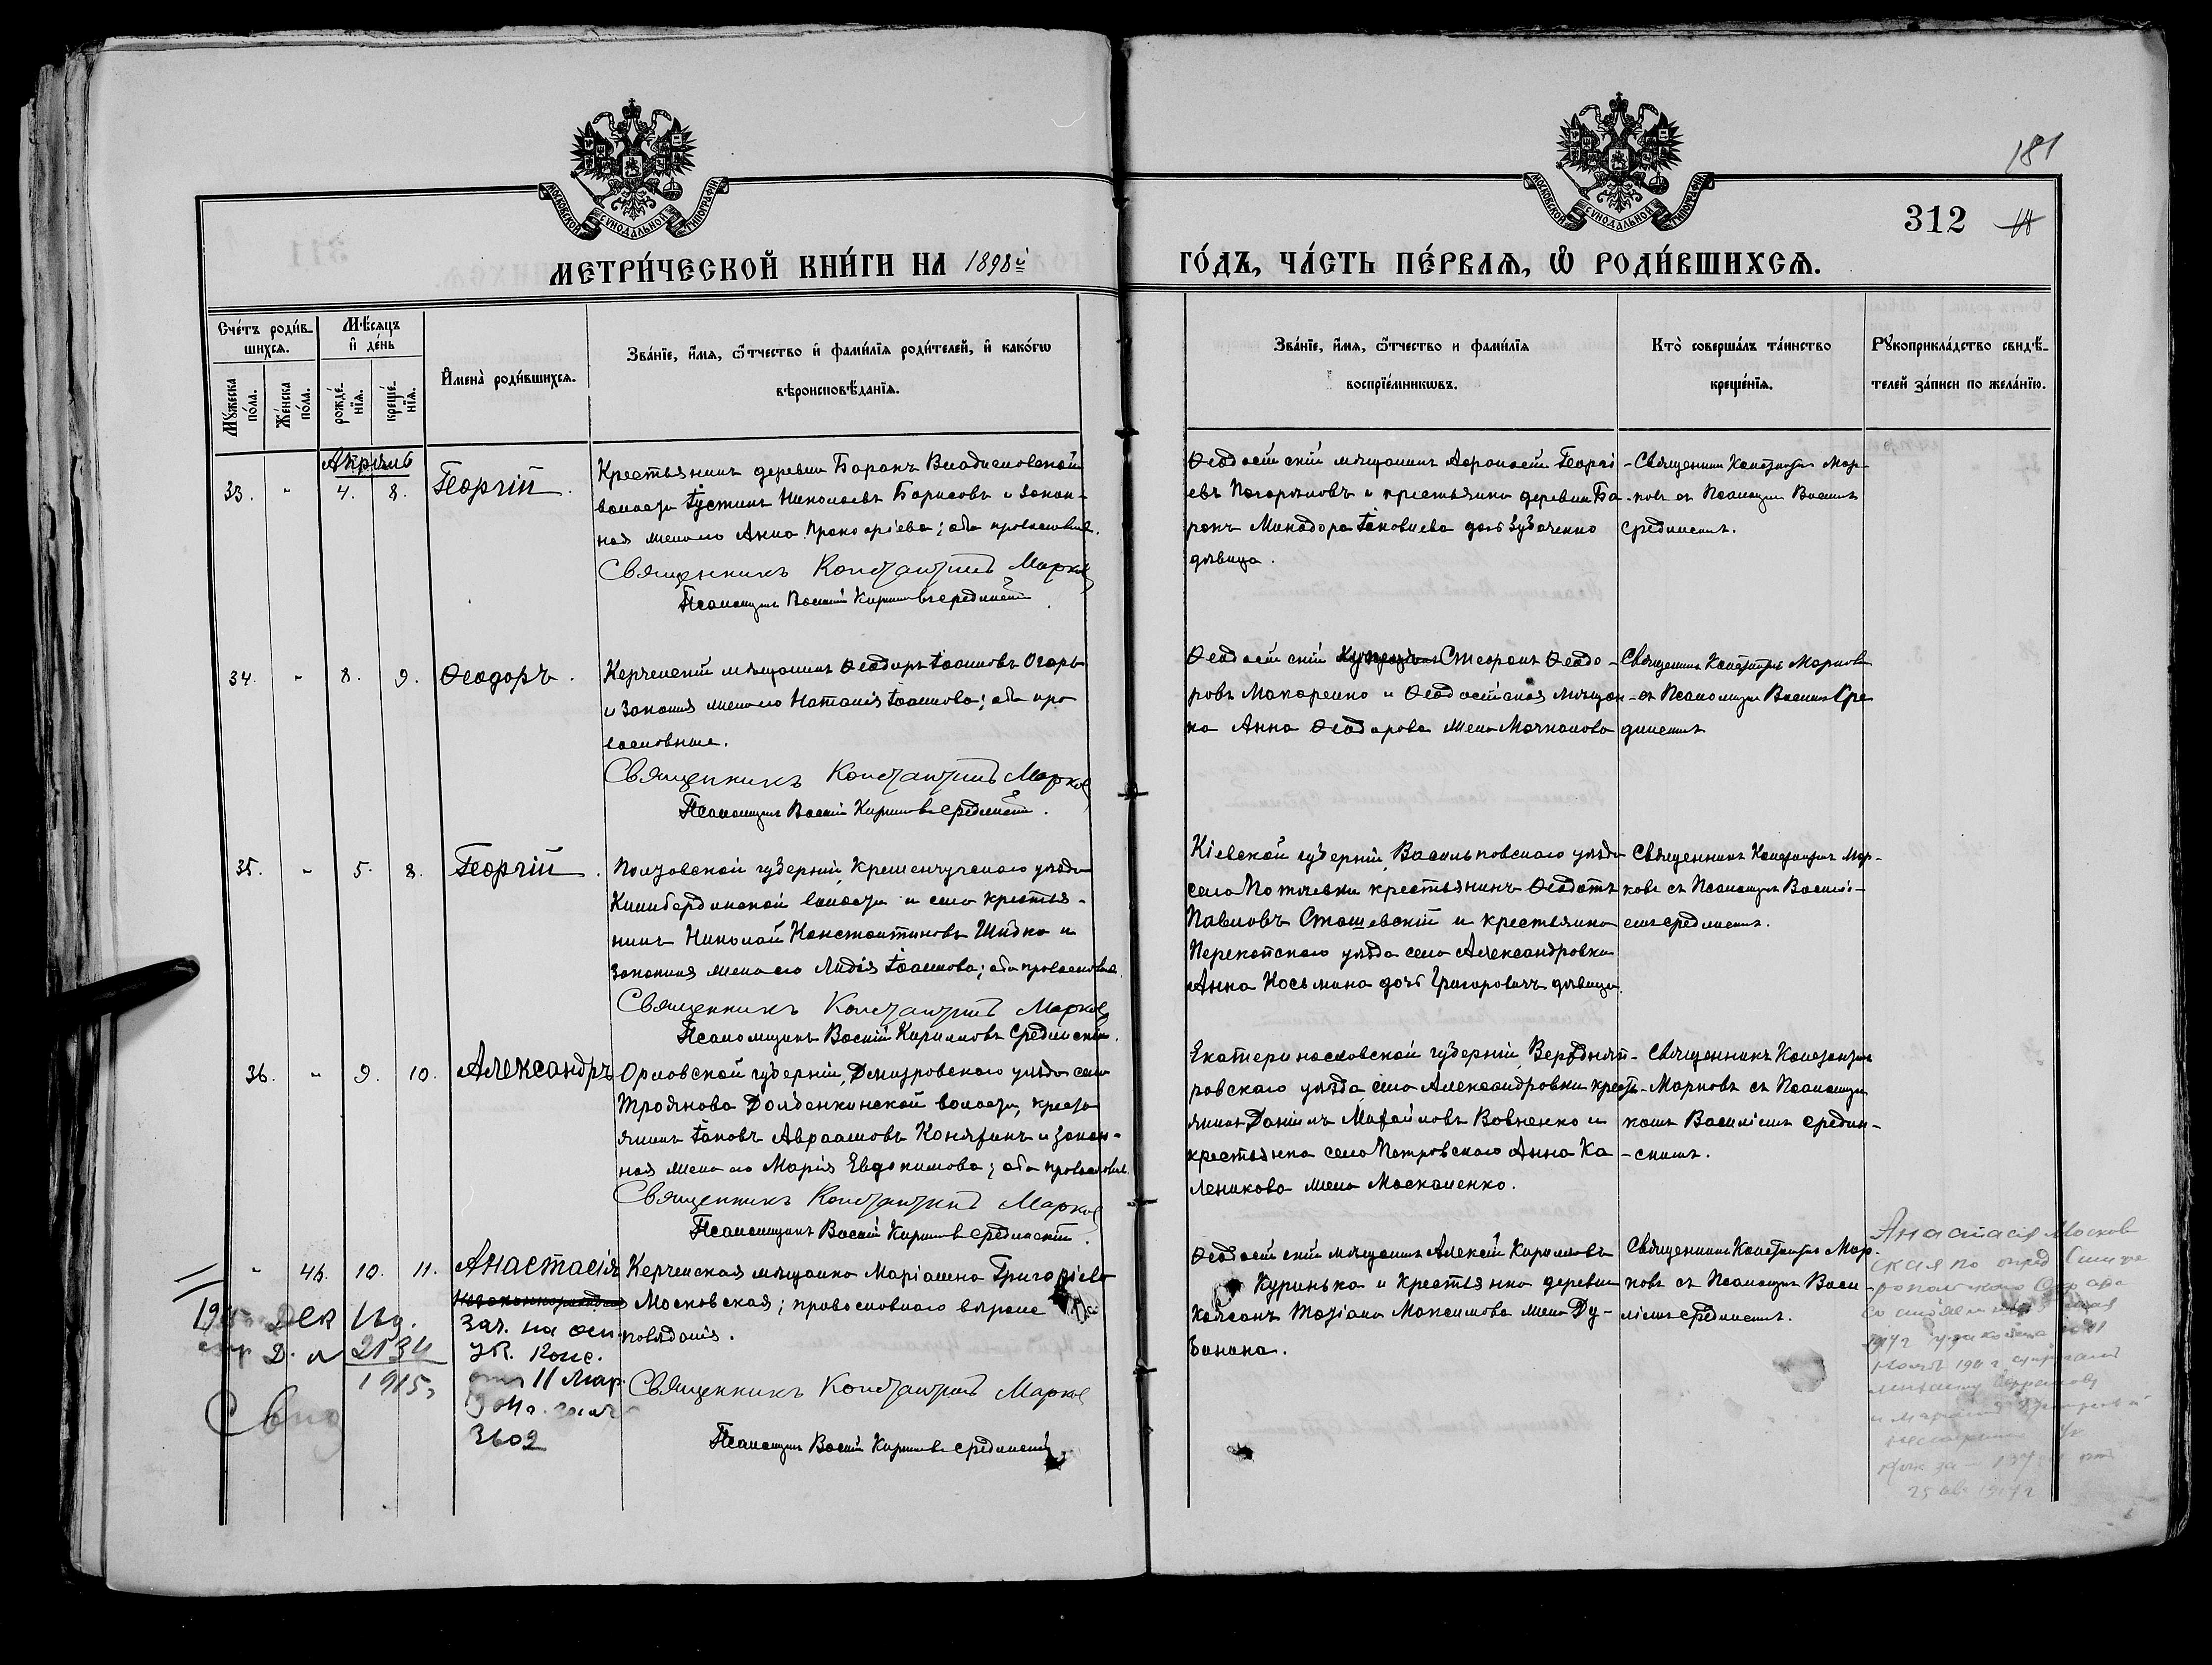 181
312
МОСКОВСКОЙ СУНОДАЛЬНОЙ ТИПОГРАФІИ
МОСКОВСКОЙ СУНОДАЛЬНОЙ ТИПОГРАФІИ
МЕТРИ́ЧЕСКОЙ КНИ́ГИ НА 1898й
ГО́ДЪ, ЧА́СТЬ ПЕ́РВАѦ, Ѡ РОДИ́ВШИХСѦ.
Сче́тъ роди́в-
шихсѧ.
Мѣ́сѧцъ
и҆ де́нь
Мꙋ́жеска по́ла.
Же́нска по́ла.
рожде́-
нїѧ.
креще́-
нїѧ.
И҆мена̀ роди́вшихсѧ.
Зва́нїе, и҆́мѧ, ѻ҆́тчество и҆ фами́лїѧ роди́телей, и҆ како́гѡ
вѣроисповѣ́данїѧ.
Зва́нїе, и҆́мѧ, ѻ҆́тчество и фами́лїѧ
воспрїе́мникѡвъ.
Кто̀ соверша́лъ та́инство
креще́нїѧ.
Рꙋкоприкла́дство свидѣ́-
телей за́писи по жела́нїю.
Апрѣль
33. - 4. 8. Георгій.
Крестьянинъ деревни Баракъ Владиславовской
волости Іустинъ Николаевъ Борисовъ и закон-
ная жена его Анна Прокофіева; оба православн.
Священникъ Константинъ Марковъ
Псаломщикъ Василій Кирилловъ Срединскій.
Ѳеодосійскій мѣщанинъ Аѳанасій Георгі-
евъ Погорѣловъ и крестьянка деревни Ба-
ракъ Минодора Іаковлева дочь Зубаченко
дѣвица.
Священникъ Константинъ Мар-
ковъ съ Псаломщ. Василіемъ
Срединскимъ.
34. - 8. 9. Ѳеодоръ.
Керченскій мѣщанинъ Ѳеодоръ Іоанновъ Огарь
и законная жена его Наталія Іоаннова; оба пра
вославные.
Священникъ Константинъ Марковъ
Псаломщикъ Василій Кирилловъ Срединскій.
Ѳеодосійскій Стефанъ Ѳеодо-
ровъ Макаренко и Ѳеодосійская мѣщан-
ка Анна Ѳеодорова жена Мочкалова
Священникъ Константинъ Марковъ
съ Псаломщ. Василіемъ Сре
динскимъ
35. - 5. 8. Георгій.
Полтавской губерніи, Кременчугскаго уѣзда
Келебердянской волости и села крестья-
нинъ Николай Константиновъ Шидко и
законная жена его Лидія Іоаннова; оба православные.
Священникъ Константинъ Марковъ
Псаломщикъ Василій Кирилловъ Срединскій.
Кіевской губерніи, Васильковскаго уѣзда
села Поточевки крестьянинъ Ѳеодотъ
Павловъ Сташевскій и крестьянка
Перекопскаго уѣзда села Александровки
Анна Косьмина дочь Григоровичъ дѣвица.
Священникъ Константинъ Мар-
ковъ съ Псаломщ. Василі-
емъ Срединскимъ.
36. - 9. 10. Александръ
Орловской губерніи, Дмитровскаго уѣзда села
Троянова Долбенкинской волости, кресть
янинъ Іаковъ Авраамовъ Конятинъ и закон-
ная жена его Марія Евдокимова; оба православн.
Священникъ Константинъ Марковъ
Псаломщикъ Василій Кирилловъ Срединскій.
Екатеринославской губерніи, Верхднѣп-
ровскаго уѣзда, села Александровки крест-
янинъ Даніилъ Михайловъ Вовненко и
крестьянка села Петровскаго Анна Ка
леникова жена Москаленко.
Священникъ Константинъ
Марковъ съ Псаломщи
комъ Василіемъ Средин-
скимъ.
- 46. 10. 11. Анастасія
Керченская мѣщанка Маріамна Григоріева
Московская; православнаго вѣроис
повѣданія.
Священникъ Константинъ Марковъ
Псаломщикъ Василій Кирилловъ Срединскій
Ѳеодосійскій мѣщанинъ Алексій Кирилловъ
Куринька и крестьянка деревни
Колсанъ Татіана Максимова жена Ду-
бинина.
Священникъ Константинъ Мар-
ковъ съ Псаломщ. Васи
ліемъ Срединскимъ.
Дек
2534
1915
Свид
Зач. на осн.
ук. Конс.
отъ 11 Мар.
3602
Анастасія Москов
ская по опред
25 1917 г